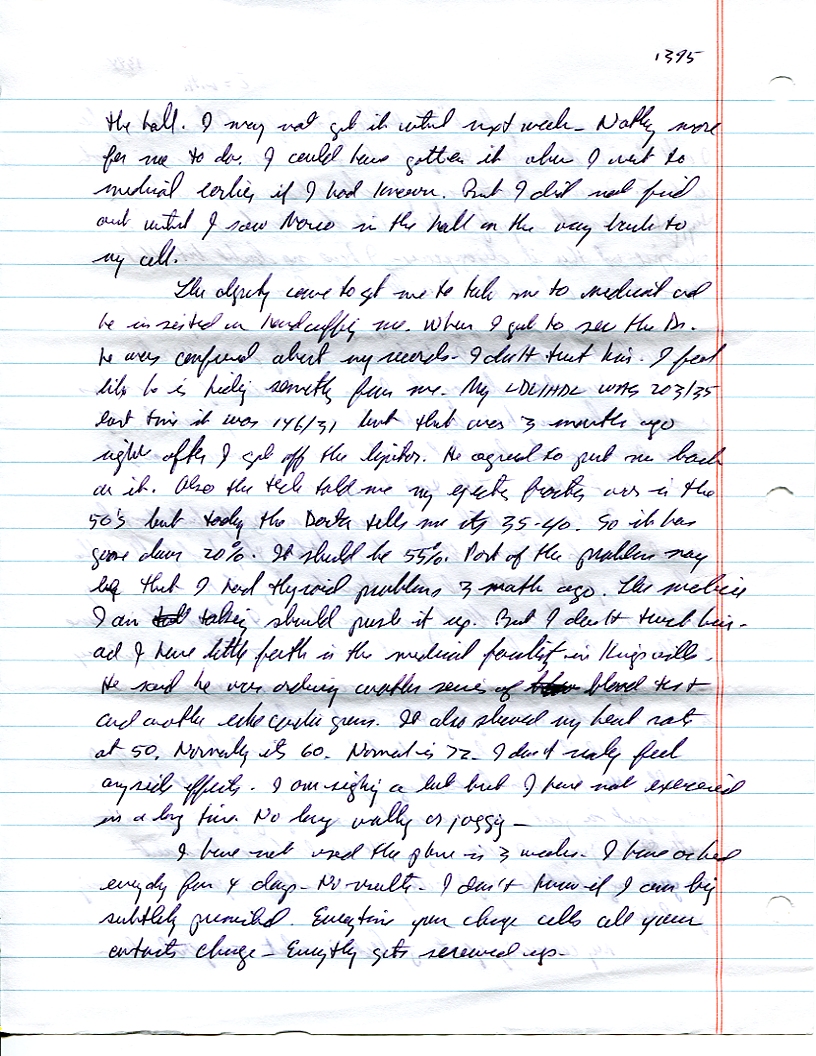 1395
the hall. I may not get it until next week - Nothing more
for me to do. I could have gotten it when I went to
medical earlier if I had known. But I did not find
out until I saw in the hall on the way back to
my cell.
The deputy came to get me to take me to medical and
he insisted on handcuffing me. When I got to see the Dr.
he was confused about my records - I don't trust him. I feel
like he is hiding something from me. My LDL/HDL was 203/35
last time it was 146/31 but that was 3 months ago
right after I got off the lipitor. He agreed to put me back
on it. Also the tech told me my ejection fraction was in the
50's but today the Doctor tells me its 35-40. So it has
gone down 20%. It should be 55%. Part of the problem may
be that I had thyroid problems 3 month ago. The medicine
I am taking should push it up. But I don't trust him -
and I have little faith in the medical facility in Kingsville.
He said he was ordering another series of blood test
and another echocardiogram. It also showed my heart rate
at 50. Normally its 60. Normal is 72. I don't really feel
any side effects. I am sighing a lot but I have not exercised
in a long time. No long walks or jogging -
I have not used the phone in 3 weeks. I have asked
everyday for 4 days - No results. I don't know if I am being
subtlely punished. Everytime you change cells all your
contacts change - Everything gets screwed up.